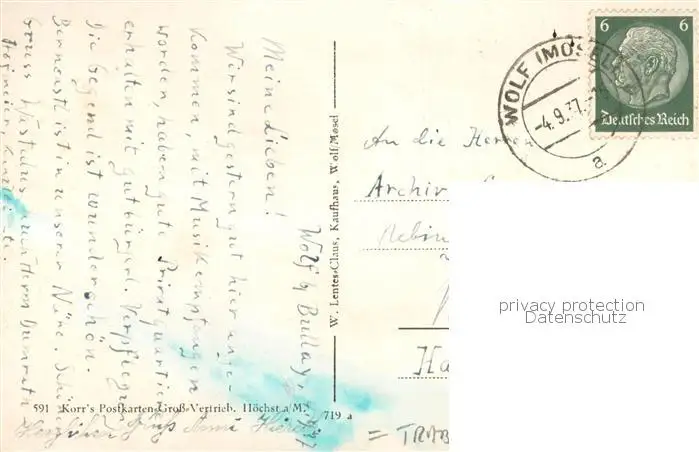 Wolf b. Bullay,
Meine Lieben!
Wir sind gestern gut hier ange-
kommen, mit Musik empfangen
worden, haben gute Privatquartiere
erhalten mit gutbürgerl. Verpflegung
Die Gegend ist wunderschön.
Berncastel ist in unserer Nähe. Schöne
Gruss
Herrn
Herzlichen Gruß
W. Lentes-Claus, Kaufhaus, Wolf/Mosel
591 Korr's Postkarten-Groß-Vertrieb. Höchst a/M.
719 a
6 6
Deutsches Reich
WOLF (MOSEL)
-4.9.37.
a
An die Herren
Archiv
Ha
= TRAB
privacy protection
Datenschutz